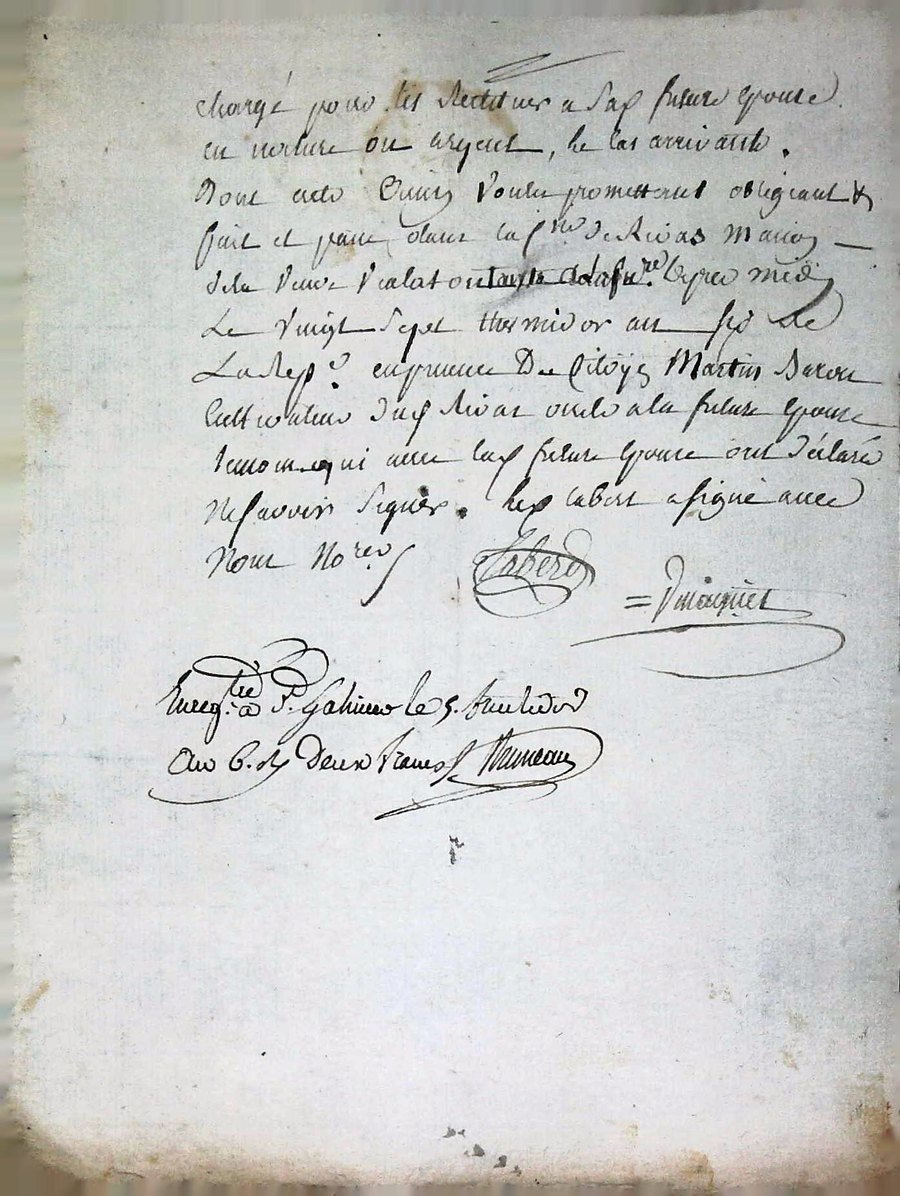 chargé pour les Restituer a Sad future Epouse
en nature ou argent, le Cas arrivant.
Dont acte Ainsy Voulu promettant obligeant &
fait et passé dans la C.ne de Rivas Maison
de la Veuve Violat apres midy
Le Vingt Sept thermidor an Six de
La Rep.e en presence De Citoyen Martin
Cultivateur dud Rivas oncle a la future Epouse
temoin qui avec lad future Epouse ont déclaré
Ne Savoir Signer. led labert a signé avec
Nous No.res
Labert
Enreg.tré a S.t Galmier le 5. fructidor
an 6. Deux francs